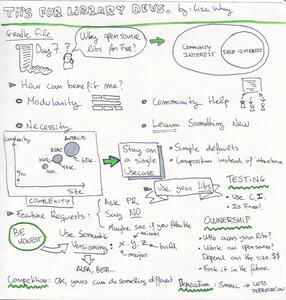 TIPS FOR LIBRARY DEVS. by: Lisa Wray
Gradle File
Day 7?
Why open source
libs for Free?
COMMUNITY
INTEREST
SELF-INTEREST
How can benefit me?
Modularity
Community Help
Necessity
Learn Something New
ANDROID
Complexity
Size
COMPLEXITY
Stay on
a single
Usecase
Simple defaults
Composition instead of inheritance
Use your libs
TESTING
Use C.I.
Is Free!
Feature Requests:
Ask PR
Say NO
Maybe, see if you
BE
HONEST
Use Semantic
Versioning:
x.y.z - build
minor
major
ALFA, BETA...
OWNERSHIP
Who owns your libs?
Work on opensource?
Depend on the size $$
Fork it in the future
Competition: OK, yours can do something different
Deprecation: Small → LESS
DEPRECATION